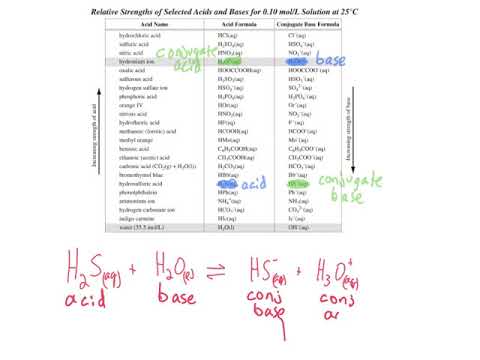 Relative Strengths of Selected Acids and Bases for 0.10 mol/L Solution at 25°C
Acid Name Acid Formula Conjugate Base Formula
hydrochloric acid HCl(aq) Cl⁻(aq)
sulfuric acid H₂SO₄(aq) HSO₄⁻(aq)
nitric acid HNO₃(aq) NO₃⁻(aq)
hydronium ion H₃O⁺(aq) H₂O(l)
oxalic acid HOOCCOOH(aq) HOOCCOO⁻(aq)
sulfurous acid H₂SO₃(aq) HSO₃⁻(aq)
hydrogen sulfate ion HSO₄⁻(aq) SO₄²⁻(aq)
phosphoric acid H₃PO₄(aq) H₂PO₄⁻(aq)
orange IV HOr(aq) Or⁻(aq)
nitrous acid HNO₂(aq) NO₂⁻(aq)
hydrofluoric acid HF(aq) F⁻(aq)
methanoic (formic) acid HCOOH(aq) HCOO⁻(aq)
methyl orange HMo(aq) Mo⁻(aq)
benzoic acid C₆H₅COOH(aq) C₆H₅COO⁻(aq)
ethanoic (acetic) acid CH₃COOH(aq) CH₃COO⁻(aq)
carbonic acid (CO₂(g) + H₂O(l)) H₂CO₃(aq) HCO₃⁻(aq)
bromothymol blue HBb(aq) Bb⁻(aq)
hydrosulfuric acid H₂S(aq) HS⁻(aq)
phenolphthalein HPh(aq) Ph⁻(aq)
ammonium ion NH₄⁺(aq) NH₃(aq)
hydrogen carbonate ion HCO₃⁻(aq) CO₃²⁻(aq)
indigo carmine HIc(aq) Ic⁻(aq)
water (55.5 mol/L) H₂O(l) OH⁻(aq)
Increasing strength of acid
Increasing strength of base
conjugate
acid
base
acid
conjugate
base
H₂S(aq) + H₂O(l) ⇌ HS⁻(aq) + H₃O⁺(aq)
acid base conj conj
base ac